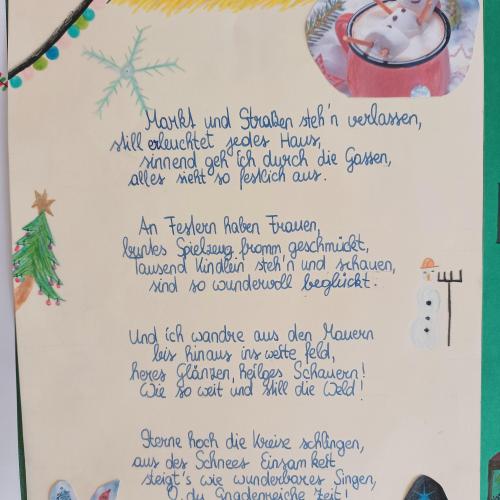 Markt und Straßen steh'n verlassen,
still erleuchtet jedes Haus,
sinnend geh ich durch die Gassen,
alles sieht so festlich aus.
An Festern haben Frauen,
buntes Spielzeug fromm geschmückt,
Tausend Kindlein steh'n und schauen,
sind so wundervoll beglückt.
Und ich wandre aus den Mauern
bis hinaus ins weite feld,
heres Glänzen, heilges Schauern!
Wie so weit und still die Weld!
Sterne hoch die Kreise schlingen,
aus des Schnees Einsamkeit
steigt's wie wunderbares Singen,
O du Gnadenreiche Zeit